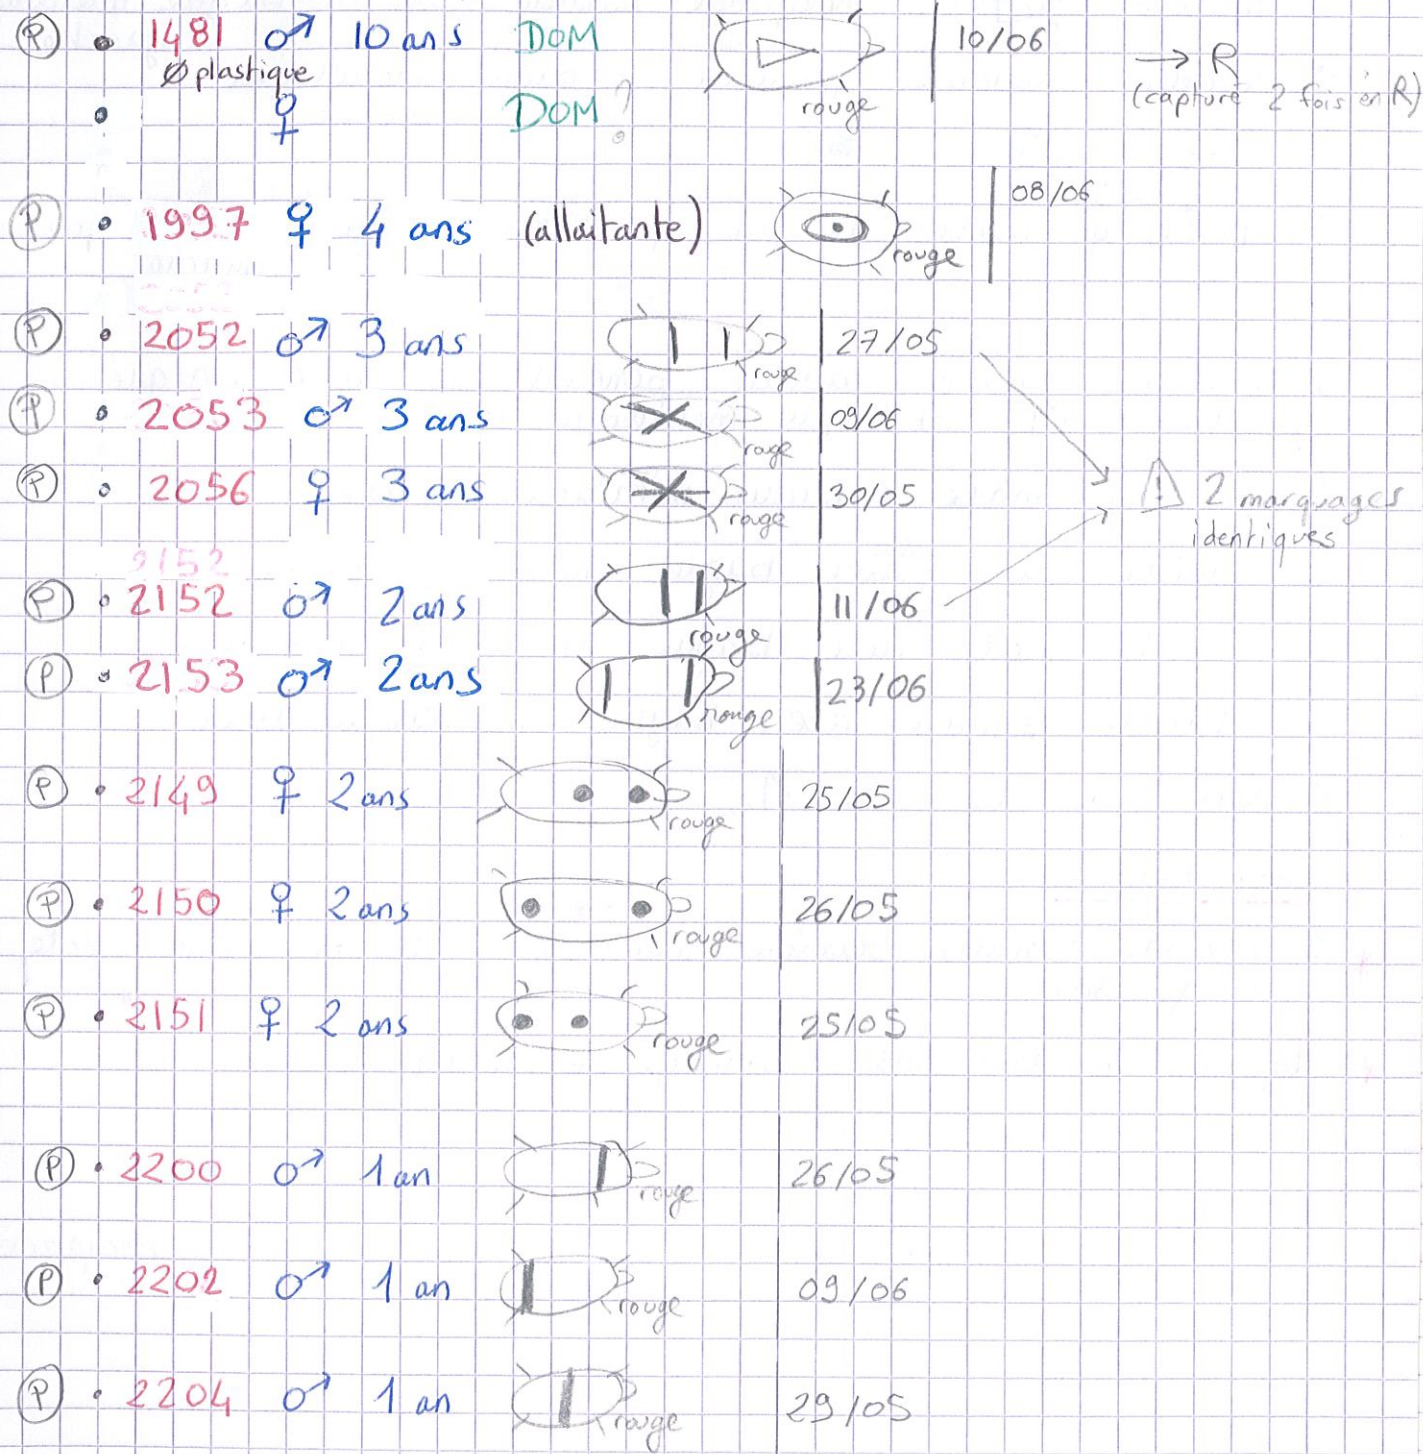 P • 1481 ♂ 10 ans DOM rouge 10/06 → R
Ø plastique (capturé 2 fois en R)
• ♀ DOM ?
P • 1997 ♀ 4 ans (allaitante) rouge 08/06
P • 2052 ♂ 3 ans rouge 27/05
P • 2053 ♂ 3 ans rouge 09/06
P • 2056 ♀ 3 ans rouge 30/05
⚠ 2 marquages
identiques
2152
P • 2152 ♂ 2 ans rouge 11/06
P • 2153 ♂ 2 ans rouge 23/06
P • 2149 ♀ 2 ans rouge 25/05
P • 2150 ♀ 2 ans rouge 26/05
P • 2151 ♀ 2 ans rouge 25/05
P • 2200 ♂ 1 an rouge 26/05
P • 2202 ♂ 1 an rouge 09/06
P • 2204 ♂ 1 an rouge 29/05